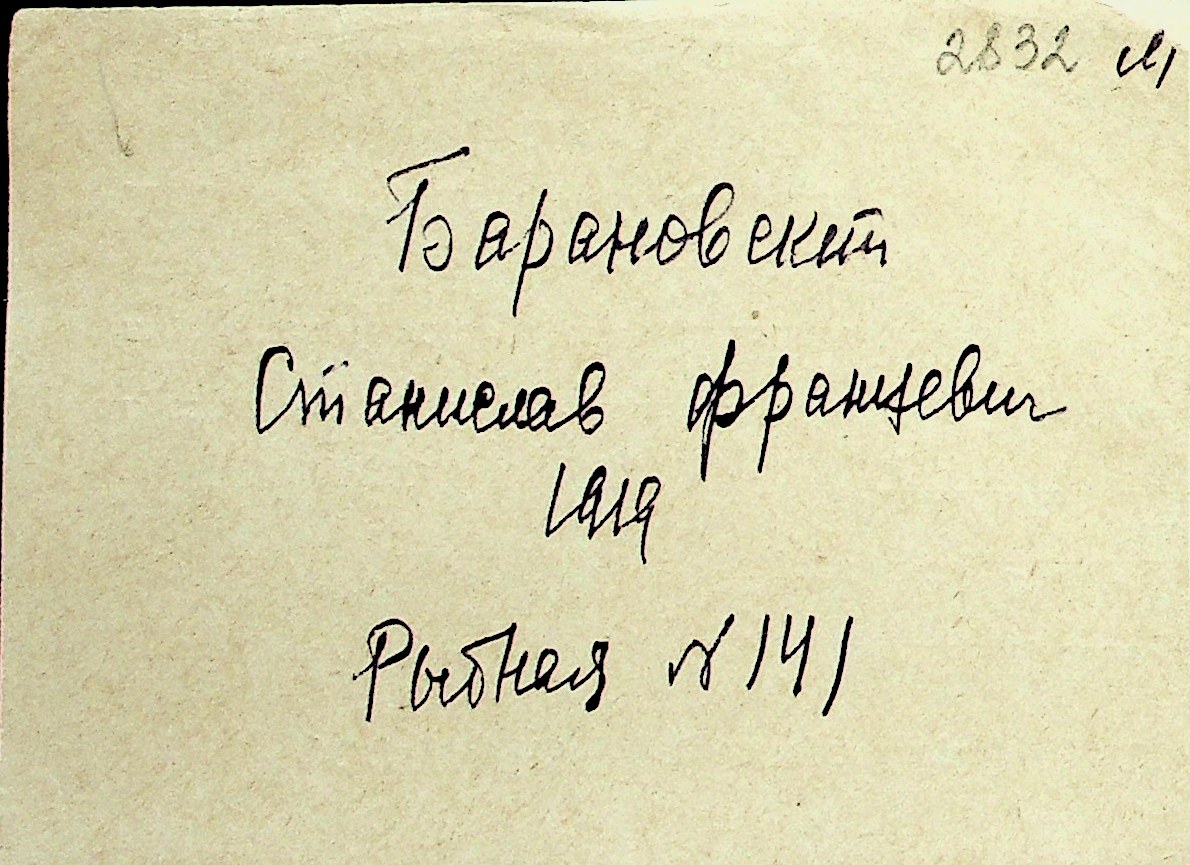 2832 М
Барановский
Станислав Францевич
1919
Рыбная № 141